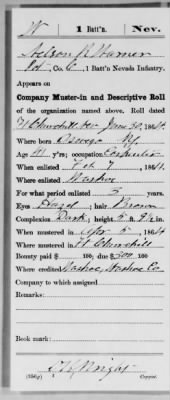 W | 1 Batt'n. | Nev.
Nelson R Warner
Pvt., Co. C, 1 Batt'n Nevada Infantry.
Appears on
Company Muster-in and Descriptive Roll
of the organization named above. Roll dated
Ft Churchill, Nev June 30, 1864.
Where born Oswego N.Y.
Age 41 y'rs; occupation Carpenter
When enlisted Feb 7, 1864.
Where enlisted Washoe
For what period enlisted 3 years.
Eyes Hazel; hair Brown
Complexion Dark; height 5 ft. 9½ in.
When mustered in Apr 5, 1864
Where mustered in Ft Churchill
Bounty paid $ 100; due $ 300 100
Where credited Washoe, Washoe Co.
Company to which assigned
Remarks:
Book mark:
Wright
(356g) Copyist.